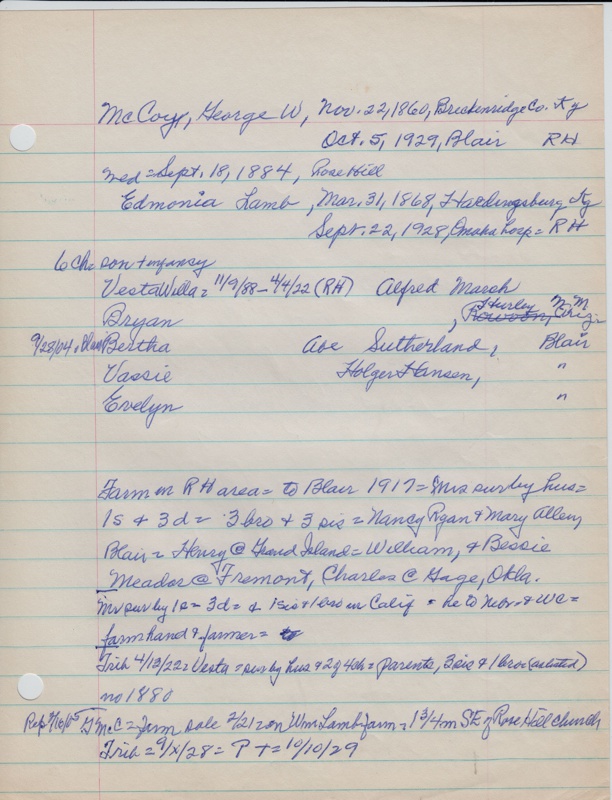 McCoy, George W, Nov. 22, 1860, Breckenridge Co. Ky
Oct. 5, 1929, Blair RH
med = Sept. 18, 1884, Rose Hill
Edmonia Lamb, Mar. 31, 1868, Hardingsburg, Ky
Sept. 22, 1928, Omaha hosp = RH
6 Ch = son + infancy
Vesta Willa = 11/9/88 - 4/4/22 (RH) Alfred Marsh
Bryan , Hurley N.M.
9/28/04, Blair Bertha Abe Sutherland, Blair
Vassie Holger Hansen, "
Evelyn "
Farm in RH area = to Blair 1917 = Mrs sur by hus =
1s + 3d = 3 bro + 3 sis = Nancy Ryan + Mary Allen,
Blair = Henry @ Grand Island = William, + Bessie
Meador @ Fremont, Charles @ Gage, Okla.
Mr sur by 1s = 3d = + 1 sis + 1 bro in Calif = he to Nebr + WC =
farmhand + farmer =
Trib 4/13/22 = Vesta = sur by hus + 2g 4b = parents, 3 sis + 1 bro
no 1880
G McC = farm sale 2/21 = on Wm Lamb farm = 1 3/4 m SE of Rose Hill church
Trib = 9/x/28 = P + = 10/10/29